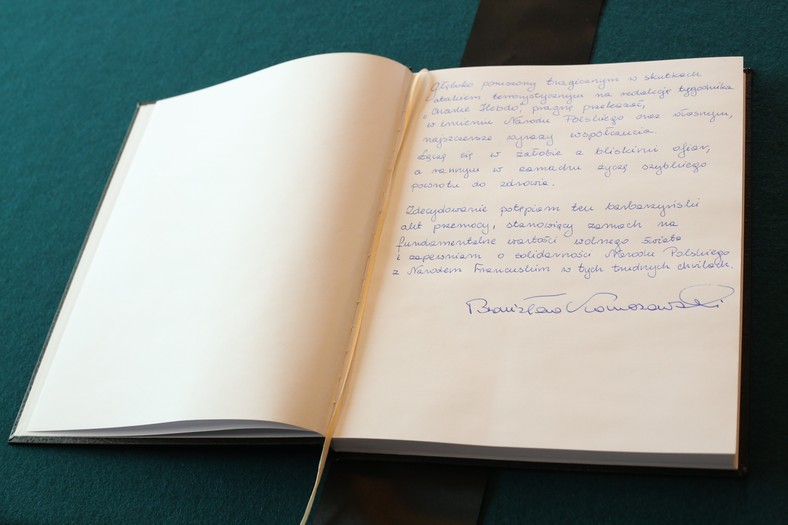 Głęboko poruszony tragicznym w skutkach
atakiem terrorystycznym na redakcję tygodnika
"Charlie Hebdo", pragnę przekazać,
w imieniu Narodu Polskiego oraz własnym,
najszczersze wyrazy współczucia.
Łączę się w żałobie z bliskimi ofiar,
a rannym w zamachu życzę szybkiego
powrotu do zdrowia.
Zdecydowanie potępiam ten barbarzyński
akt przemocy, stanowiący zamach na
fundamentalne wartości wolnego świata
i zapewniam o solidarności Narodu Polskiego
z Narodem Francuskim w tych trudnych chwilach.
Bronisław Komorowski